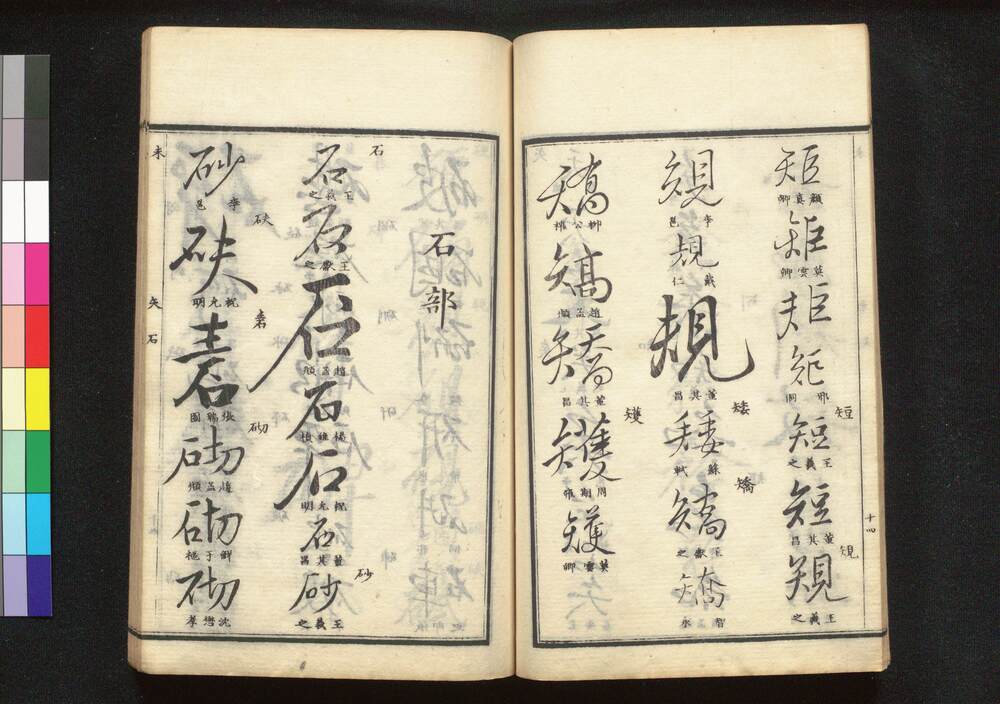 十四
短 規
矩 顔真卿 矩 莫雲卿 矩 矩 邢侗 短 王羲之 短 董其昌 規 王羲之
矮 矯
規 李邕 規 規 董其昌 矮 蘇軾 矯 王獻之 矯 智永
矱
矯 柳公權 矯 趙孟頫 矯 董其昌 矱 周期雍 矱 莫雲卿
石部
石 砂
石 王羲之 石 王獻之 石 趙孟頫 石 楊維楨 石 祝允明 石 董其昌 砂 王羲之
砆 砉 砌
砂 李邕 砆 祝允明 砉 張瑞圖 砌 趙孟頫 砌 鮮于樞 砌 沈懋孝
未 矢 石